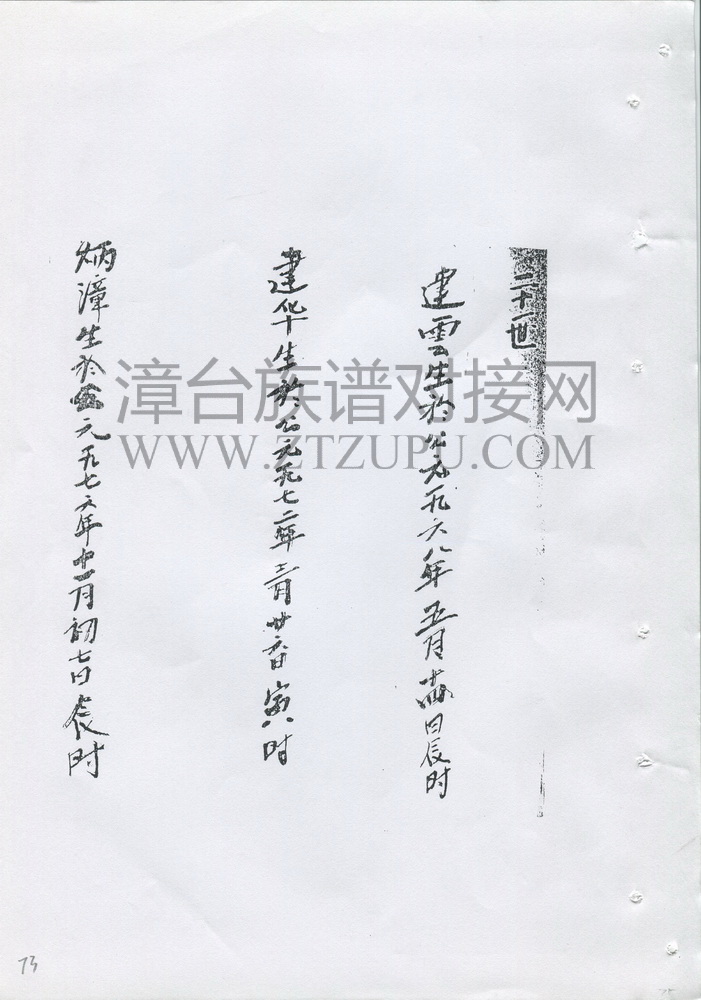 二十一世
建雲生於公元一九六八年五月十四日辰时
建华生於公元一九七二年三月廿六日寅时
炳漳生於公元一九七六年十一月初七日辰时
漳台族谱对接网
WWW.ZTZUPU.COM
73